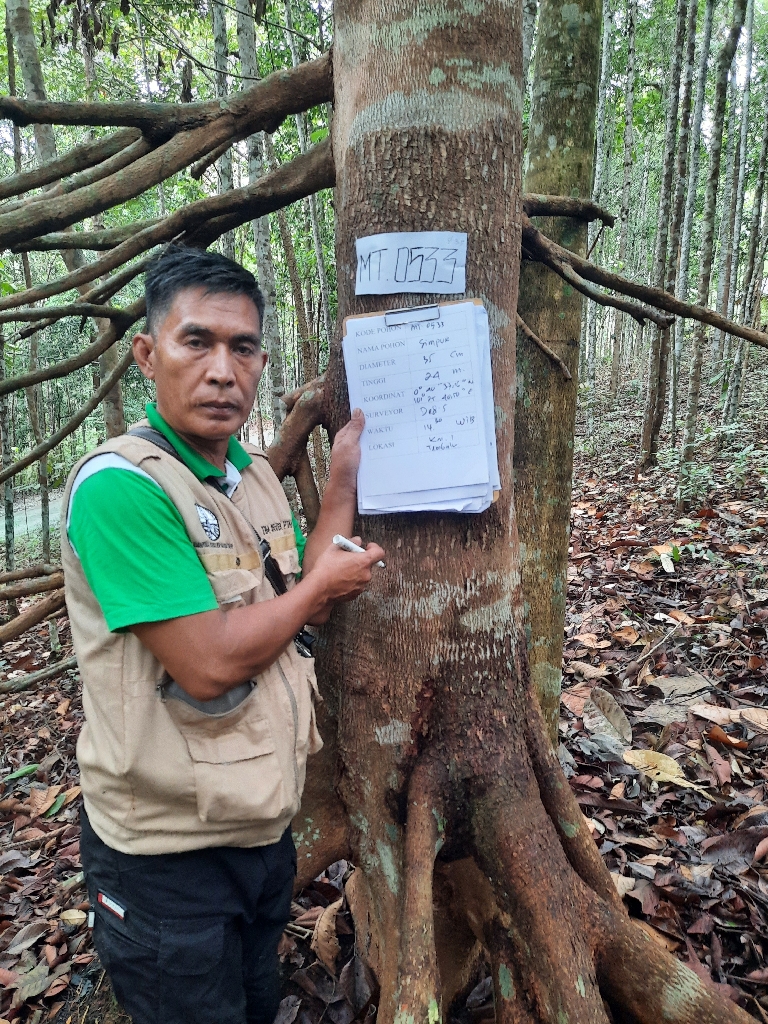 MT. 0533
KODE POHON MT 0533
NAMA POHON Simpur
DIAMETER 35 cm
TINGGI 24 m
KOORDINAT
SURVEYOR
WAKTU 14 30 WIB
LOKASI Km 1